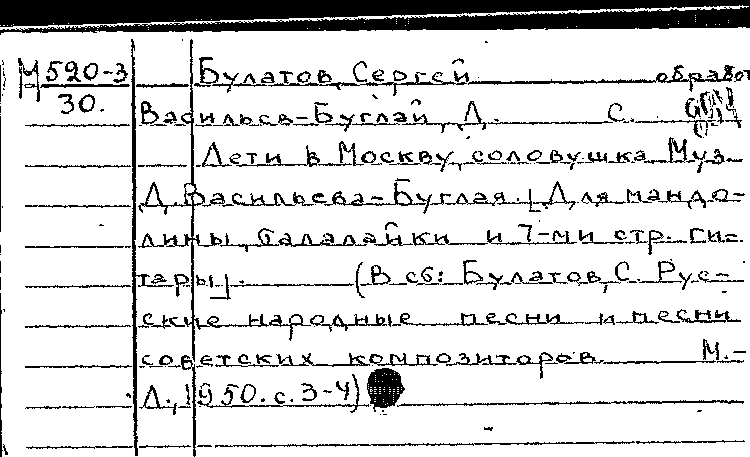 М520-3
30.
Булатов, Сергей обработ
Васильев-Буглай, Д. С.
Лети в Москву, соловушка. Муз.
Д. Васильева-Буглая. [Для мандо-
лины, балалайки и 7-ми стр. ги-
тары]. (В сб: Булатов, С. Рус-
ские народные песни и песни
советских композиторов. М.-
Л., 1950. с. 3-4)